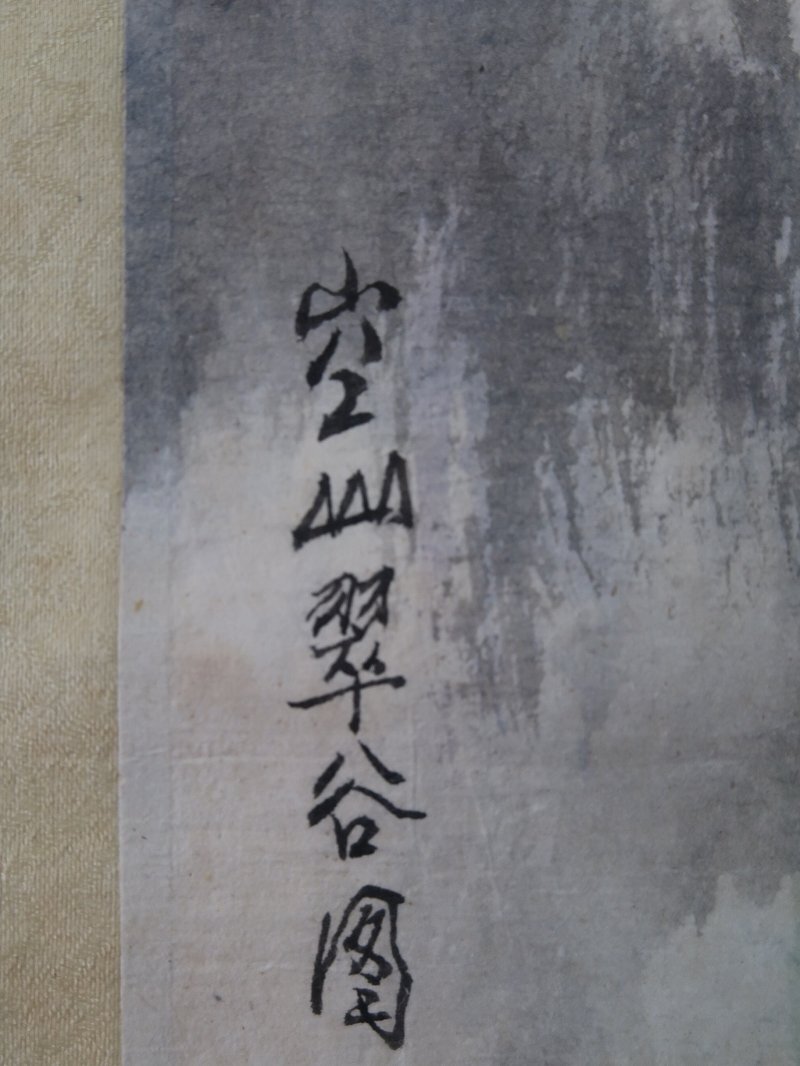 空山翠谷图